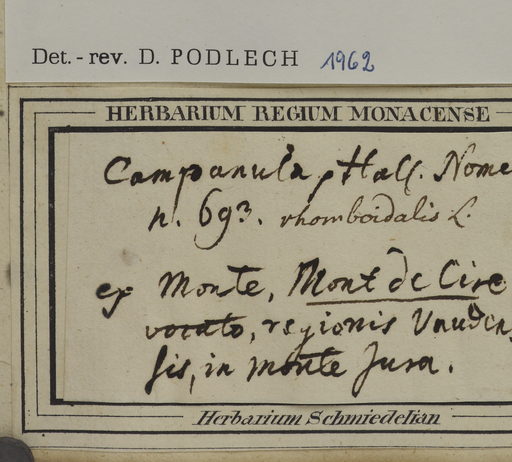 Det. - rev. D. PODLECH 1962
HERBARIUM REGIUM MONACENSE
Campanula, Hall. Nome
n. 693. rhomboidalis L.
ex Monte, Mont de Cire
vocato, regionis Vauden
sis, in monte Jura.
Herbarium Schmiedelian